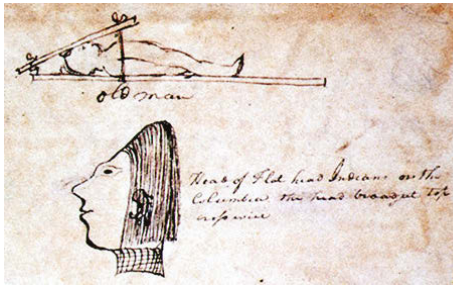 old man
Head of Flat head Indians on the
Columbia the head broadest top
crosswise